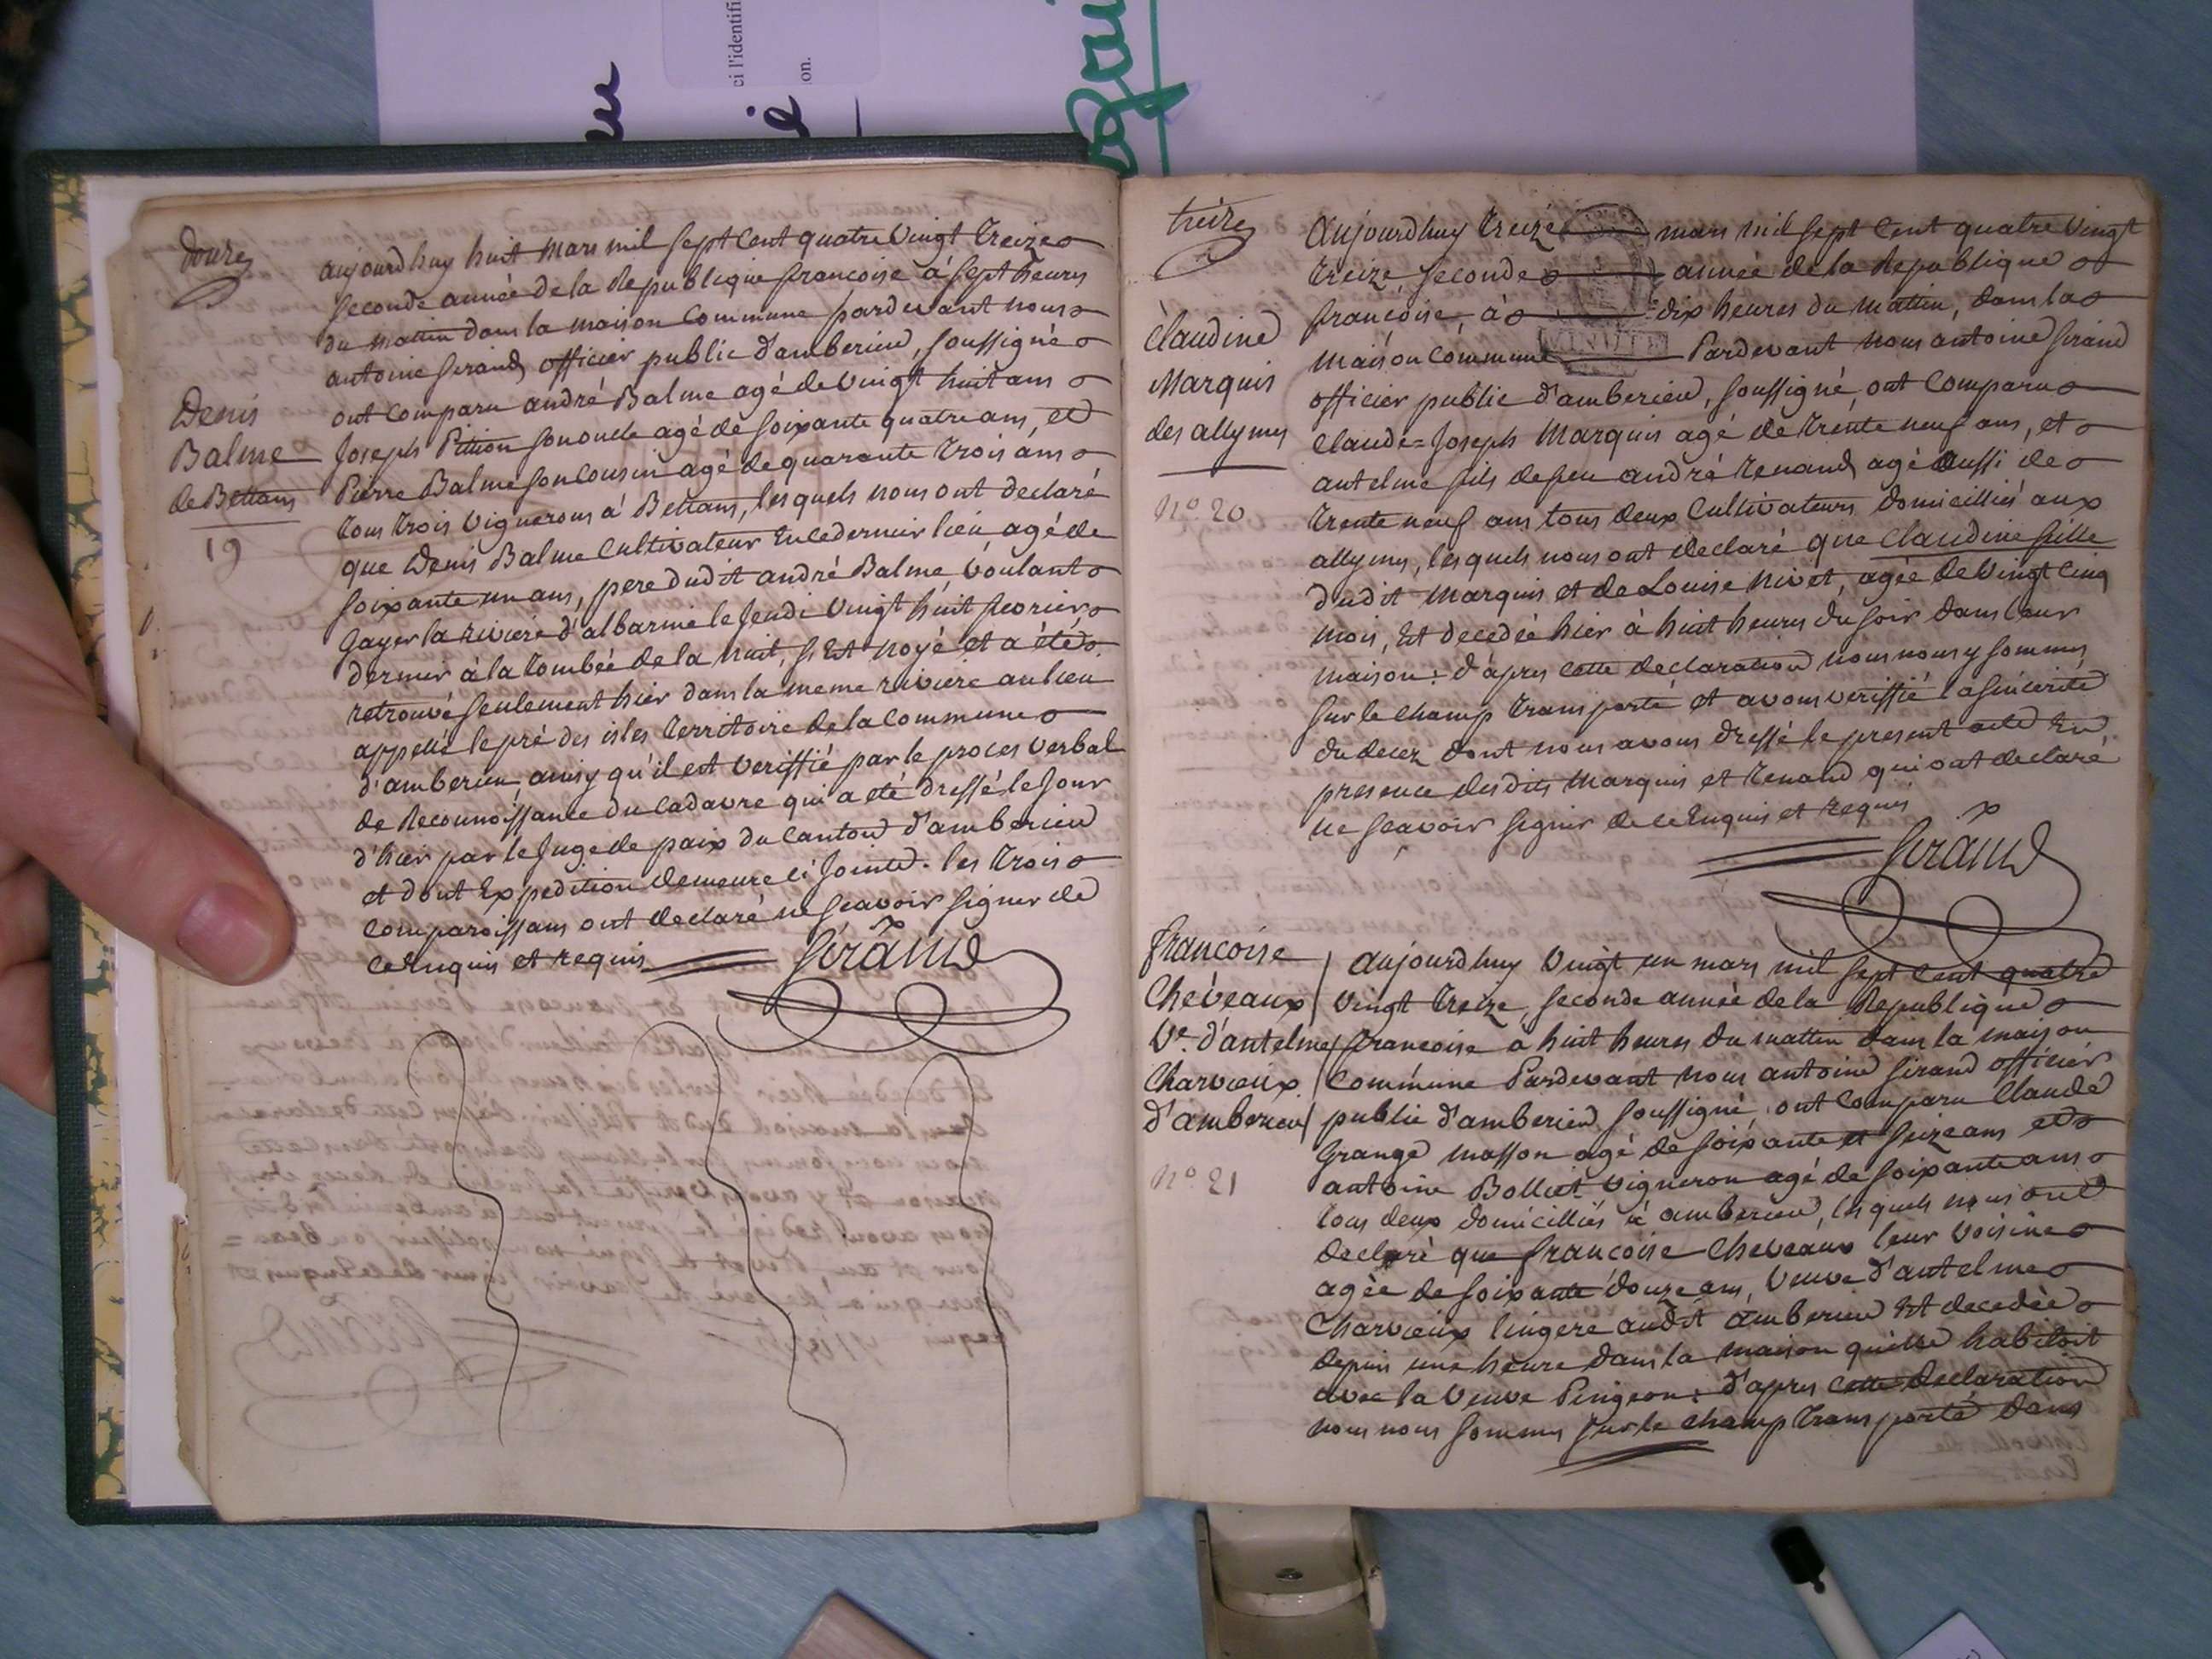 ci l'identifi
on.
douze
aujourdhuy huit Mars mil sept Cent quatre Vingt Treize
seconde année de la Republique francoise à sept heures
du mattin dans la maison Commune pardevant nous
antoine Sirand officier public d'amberieu, soussigné
ont Comparu andré Balme agé de Vingt huit ans
Joseph Pittion son oncle agé de soixante quatre ans, et
Pierre Balme son Cousin agé de quarante Trois ans
tous trois Vignerons à Bettans, lesquels nous ont declaré
que Denis Balme Cultivateur En ce dernier lieu agé de
soixante un ans, pere dudit andré Balme, Voulant
Gayer la riviere d'albarine le Jeudi Vingt huit fevrier
dernier à la Tombée de la nuit, s'Est noyé et a été
retrouvé seulement hier dans la meme riviere au lieu
appellé le pré des isles Territoire de la Commune
d'amberieu, ainsy qu'il est veriffié par le proces verbal
de Reconnoissance du Cadavre qui a été dressé le Jour
d'hier par le Juge de paix du Canton d'amberieu
et dont Expedition demeure ci Jointe. les trois
Comparoissans ont declaré ne scavoir signer de
ce Enquis et requis
Sirand
Denis
Balme
de Bettans
19
treize
Aujourdhuy treize mars mil sept Cent quatre Vingt
treize, seconde année de la Republique
francoise, à dix heures du mattin, dans la
maison Commune Pardevant nous antoine Sirand
officier public d'amberieu, soussigné, ont Comparu
Claude=Joseph Marquis agé de trente neuf ans, et
antelme fils de feu andré Renand agé aussi de
trente neuf ans tous deux Cultivateurs domicilliés aux
allymes, lesquels nous ont declaré que Claudine fille
dudit Marquis et de Louise Nivet, agée de Vingt Cinq
mois, Est decedée hier à huit heures du soir dans leur
maison: d'apres cette declaration nous nous y sommes
sur le champ transporté et avons veriffié la sincerité
du decez dont nous avons dressé le present acte En
presence desdits Marquis et Renand qui ont declaré
ne scavoir signer de ce Enquis et requis
Sirand
MINUTE
Claudine
Marquis
des allymes
N° 20
francoise
Cheveaux
Ve. d'antelme
Charvieux
d'amberieu
N° 21
aujourdhuy Vingt un mars mil sept Cent quatre
Vingt treize, seconde année de la Republique
francoise à huit heures du mattin dans la maison
Commune Pardevant nous antoine Sirand officier
public d'amberieu soussigné, ont Comparu Claude
Grange masson agé de soixante et seize ans et
antoine Bolliet Vigneron agé de soixante ans
tous deux domicilliés à amberieu, lesquels nous ont
declaré que francoise Cheveaux leur voisine
agée de soixante douze ans, Veuve d'antelme
Charvieux lingere audit amberieu Est decedée
depuis une heure dans la maison qu'elle habitoit
avec la Veuve Pingeon: d'apres cette declaration
nous nous sommes sur le champ transporté dans